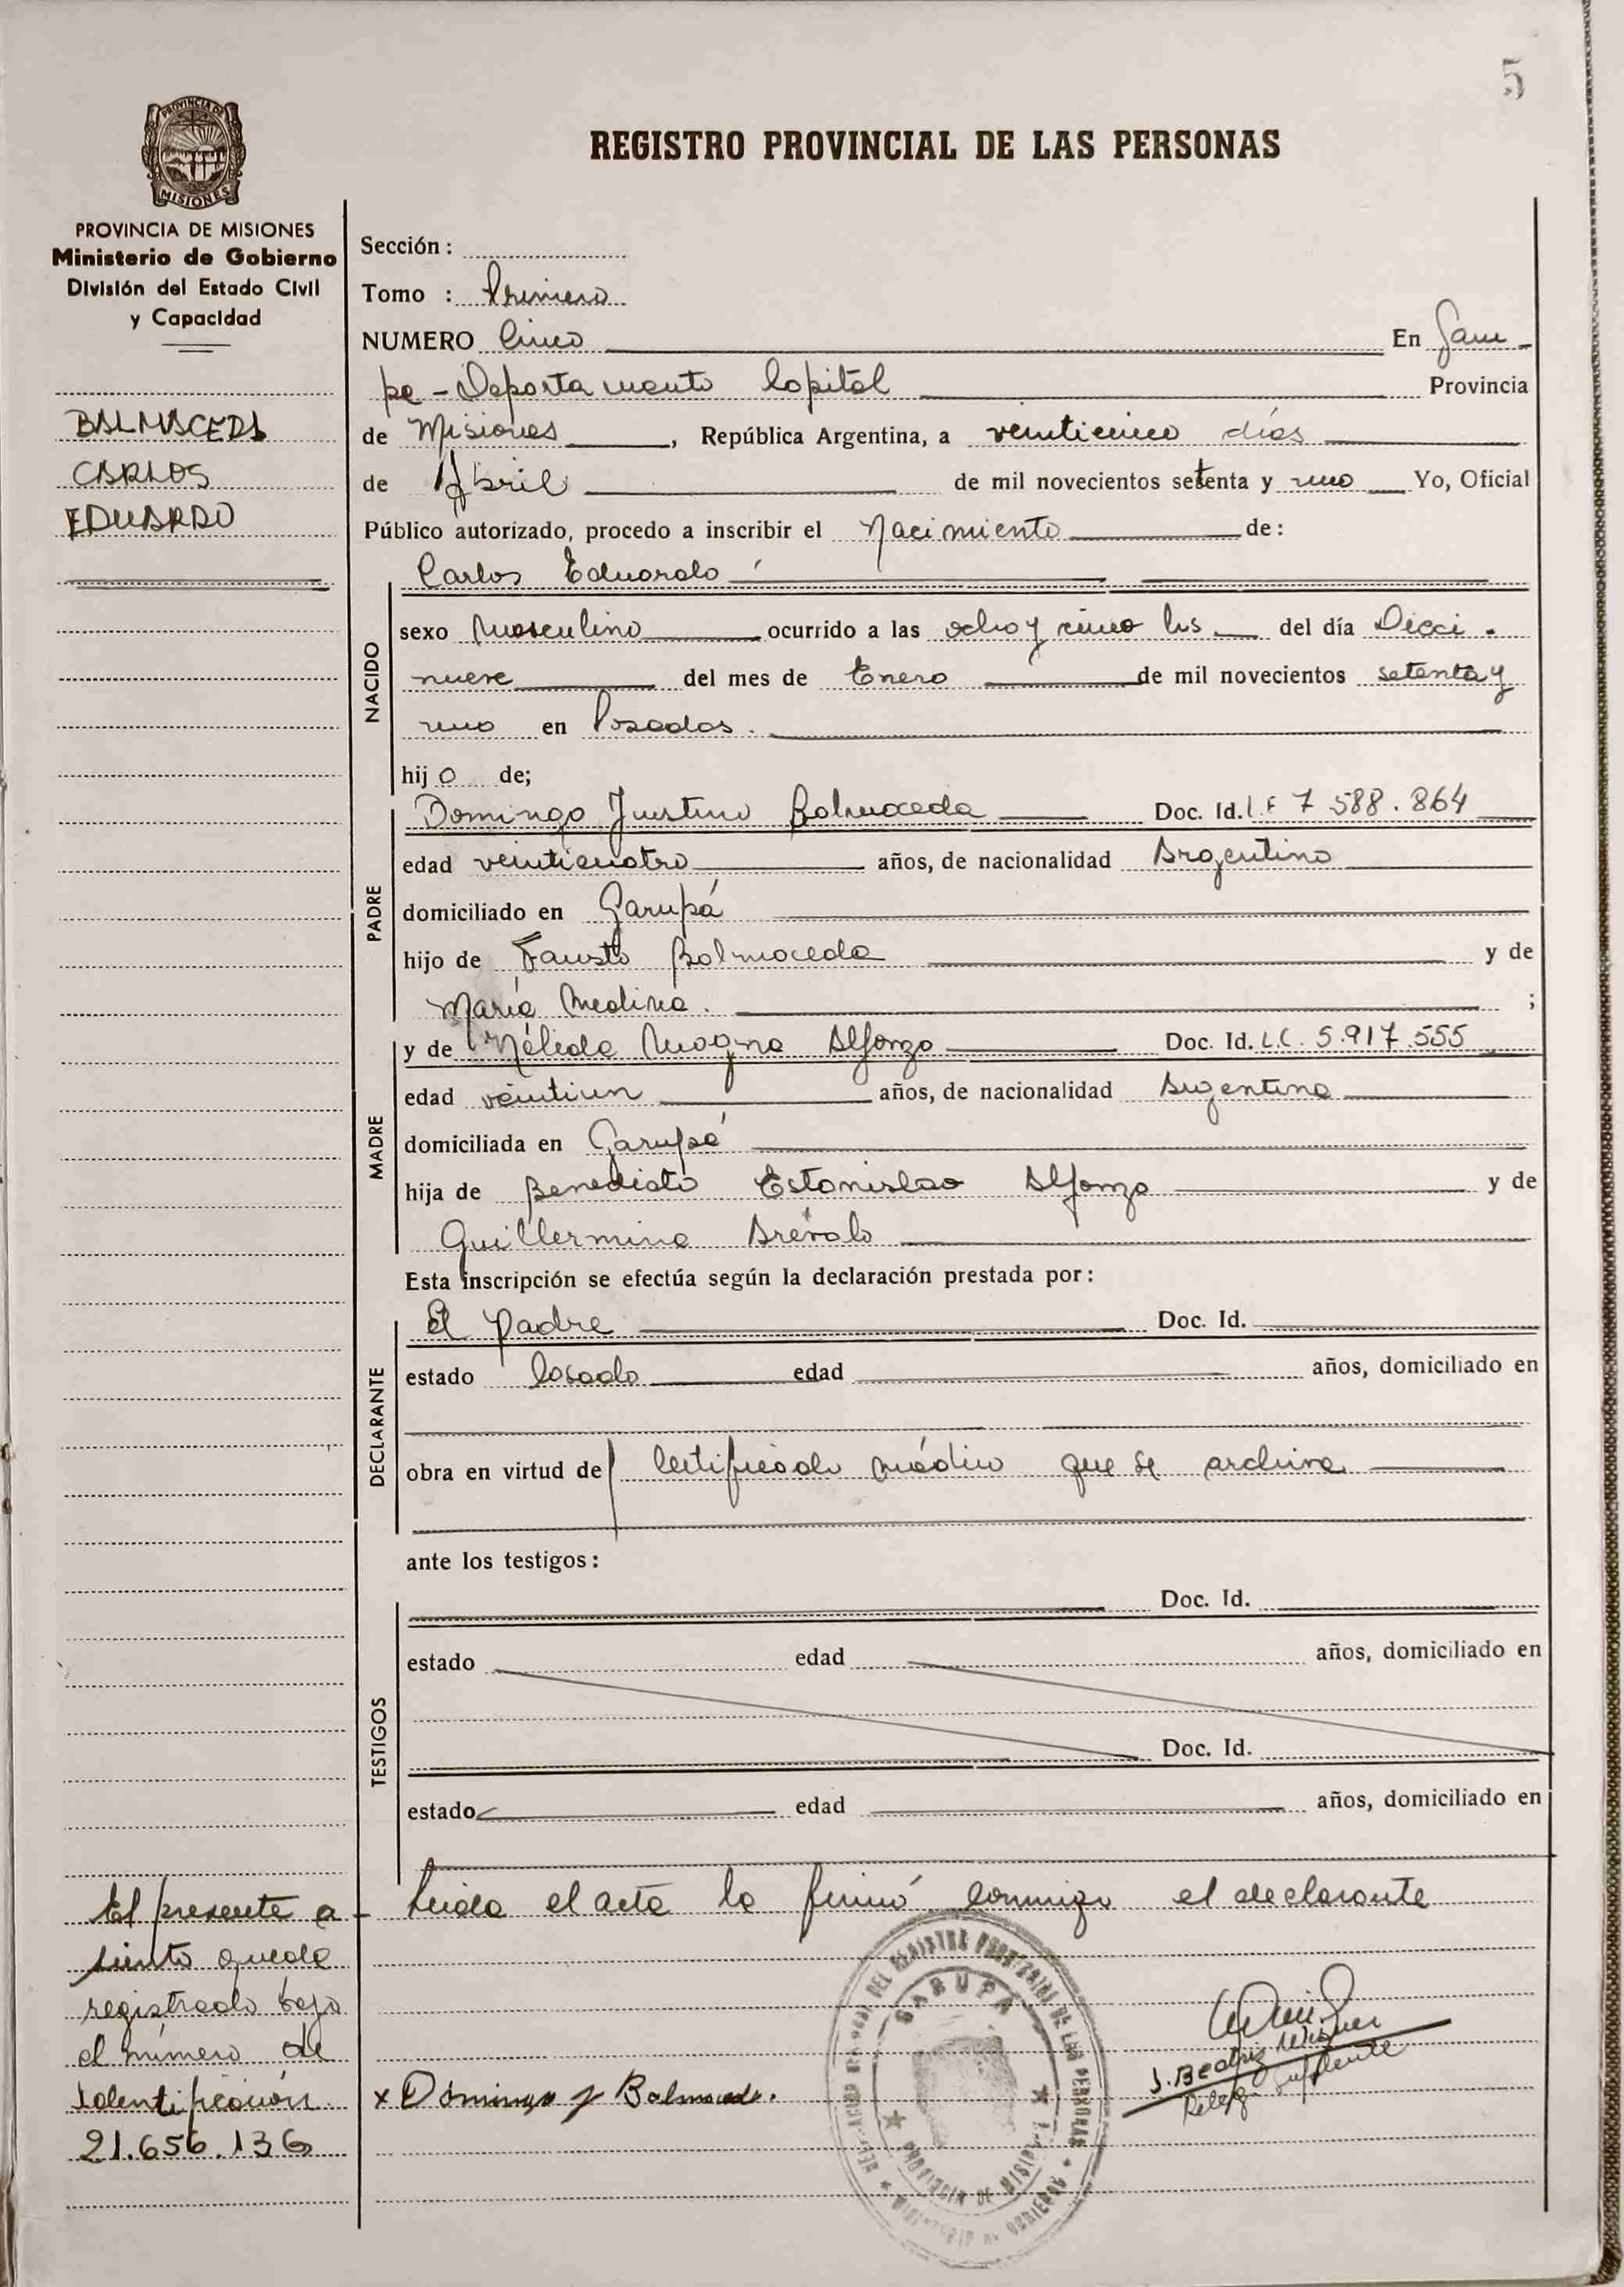 5
PROVINCIA DE
MISIONES
REGISTRO PROVINCIAL DE LAS PERSONAS
PROVINCIA DE MISIONES
Ministerio de Gobierno
División del Estado Civil
y Capacidad
BALMACEDA
CARLOS
EDUARDO
Sección :
Tomo : Primero
NUMERO Cinco En Garu
pa - Departamento Capital Provincia
de Misiones, República Argentina, a veinticinco días
de Abril de mil novecientos setenta y uno Yo, Oficial
Público autorizado, procedo a inscribir el Nacimiento de :
Carlos Eduardo
NACIDO
sexo Masculino ocurrido a las ocho y cinco hs del día Dieci
nueve del mes de Enero de mil novecientos setenta y
uno en Posadas.
hijo de;
PADRE
Domingo Justino Balmaceda Doc. Id. 7 588.864
edad veinticuatro años, de nacionalidad Argentino
domiciliado en Garupá
hijo de Fausto Balmaceda y de
María Medina. ;
MADRE
y de Nélida Magna Alfonzo Doc. Id. L.C. 5.917.555
edad veintiun años, de nacionalidad Argentina
domiciliada en Garupá
hija de Benedicto Estanislao Alfonzo y de
Guillermina Arévalo
Esta inscripción se efectúa según la declaración prestada por :
DECLARANTE
El padre Doc. Id.
estado Casado edad años, domiciliado en
obra en virtud de Certificado médico que se archiva
ante los testigos :
TESTIGOS
Doc. Id.
estado edad años, domiciliado en
Doc. Id.
estado edad años, domiciliado en
Leida el acta la firmó conmigo el declarante
El presente a-
siento queda
registrado bajo
el número de
Identificación
21.656.136
x Domingo J Balmaceda.
DEL REGISTRO PROVINCIAL DE LAS PERSONAS
GARUPA
PROVINCIA DE MISIONES
MINISTERIO DE GOBIERNO
J. Beatriz
Suplente